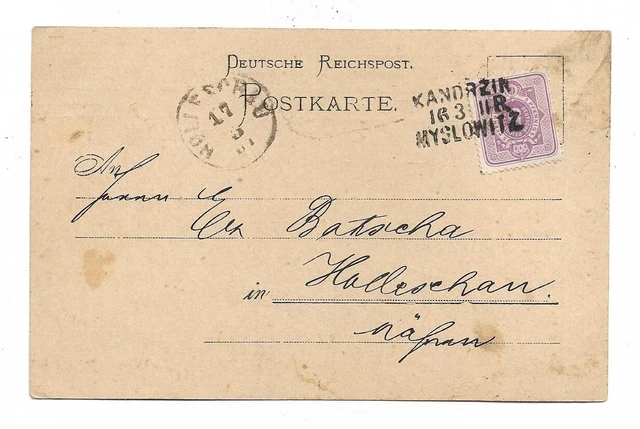 DEUTSCHE REICHSPOST.
POSTKARTE.
HOLLESCHAU
17
3
KANDRZIN
16 3 II R
MYSLOWITZ
An
Herrn
Batscha
in Holleschau.
Mähren